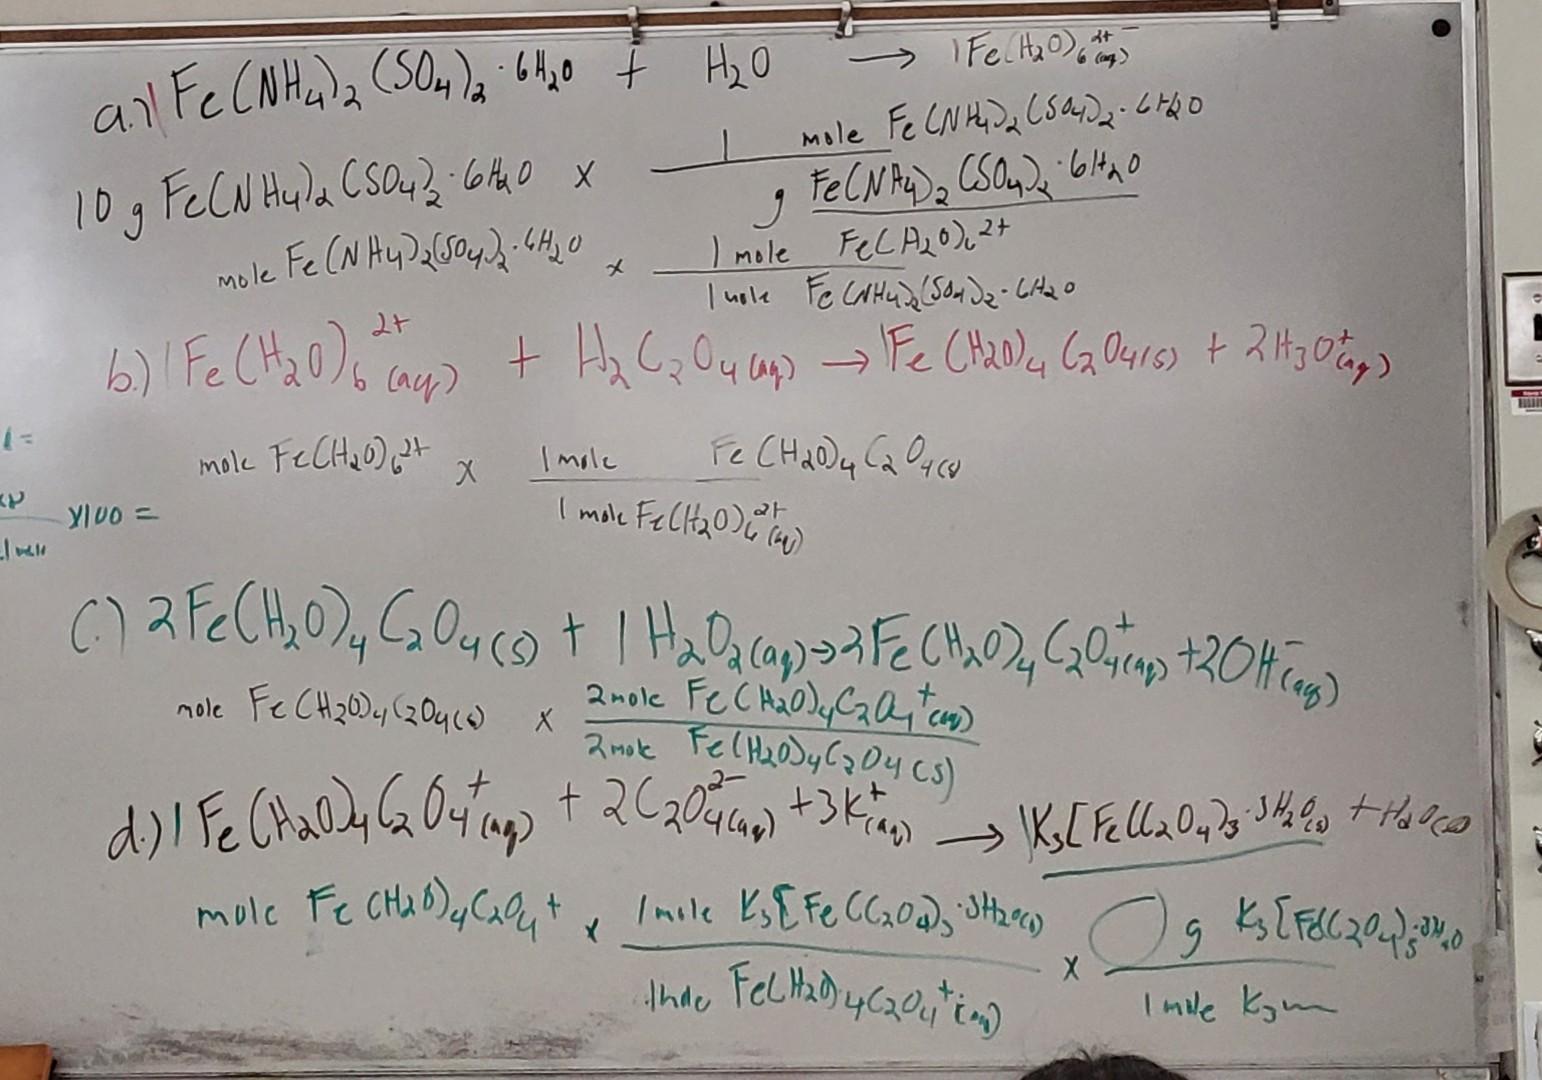 a.) 1 Fe(NH₄)₂(SO₄)₂·6H₂O + H₂O → 1 Fe(H₂O)₆²⁺(aq)
10 g Fe(NH₄)₂(SO₄)₂·6H₂O x 1 mole Fe(NH₄)₂(SO₄)₂·6H₂O
g Fe(NH₄)₂(SO₄)₂·6H₂O
mole Fe(NH₄)₂(SO₄)₂·6H₂O x 1 mole Fe(H₂O)₆²⁺
1 mole Fe(NH₄)₂(SO₄)₂·6H₂O
b.) 1 Fe(H₂O)₆²⁺(aq) + H₂C₂O₄(aq) → 1 Fe(H₂O)₄C₂O₄(s) + 2H₃O⁺(aq)
mole Fe(H₂O)₆²⁺ x 1 mole Fe(H₂O)₄C₂O₄(s)
1 mole Fe(H₂O)₆²⁺(aq)
x100 =
C.) 2Fe(H₂O)₄C₂O₄(s) + 1H₂O₂(aq) → 2Fe(H₂O)₄C₂O₄⁺(aq) + 2OH⁻(aq)
mole Fe(H₂O)₄C₂O₄(s) x 2 mole Fe(H₂O)₄C₂O₄⁺(aq)
2 mole Fe(H₂O)₄C₂O₄(s)
d.) 1 Fe(H₂O)₄C₂O₄⁺(aq) + 2C₂O₄²⁻(aq) + 3K⁺(aq) → 1K₃[Fe(C₂O₄)₃·3H₂O(s) + H₂O
mole Fe(H₂O)₄C₂O₄⁺ x 1 mole K₃[Fe(C₂O₄)₃·3H₂O(s) x g K₃[Fe(C₂O₄)₃·3H₂O
1 mole Fe(H₂O)₄C₂O₄⁺(aq) 1 mole K₃